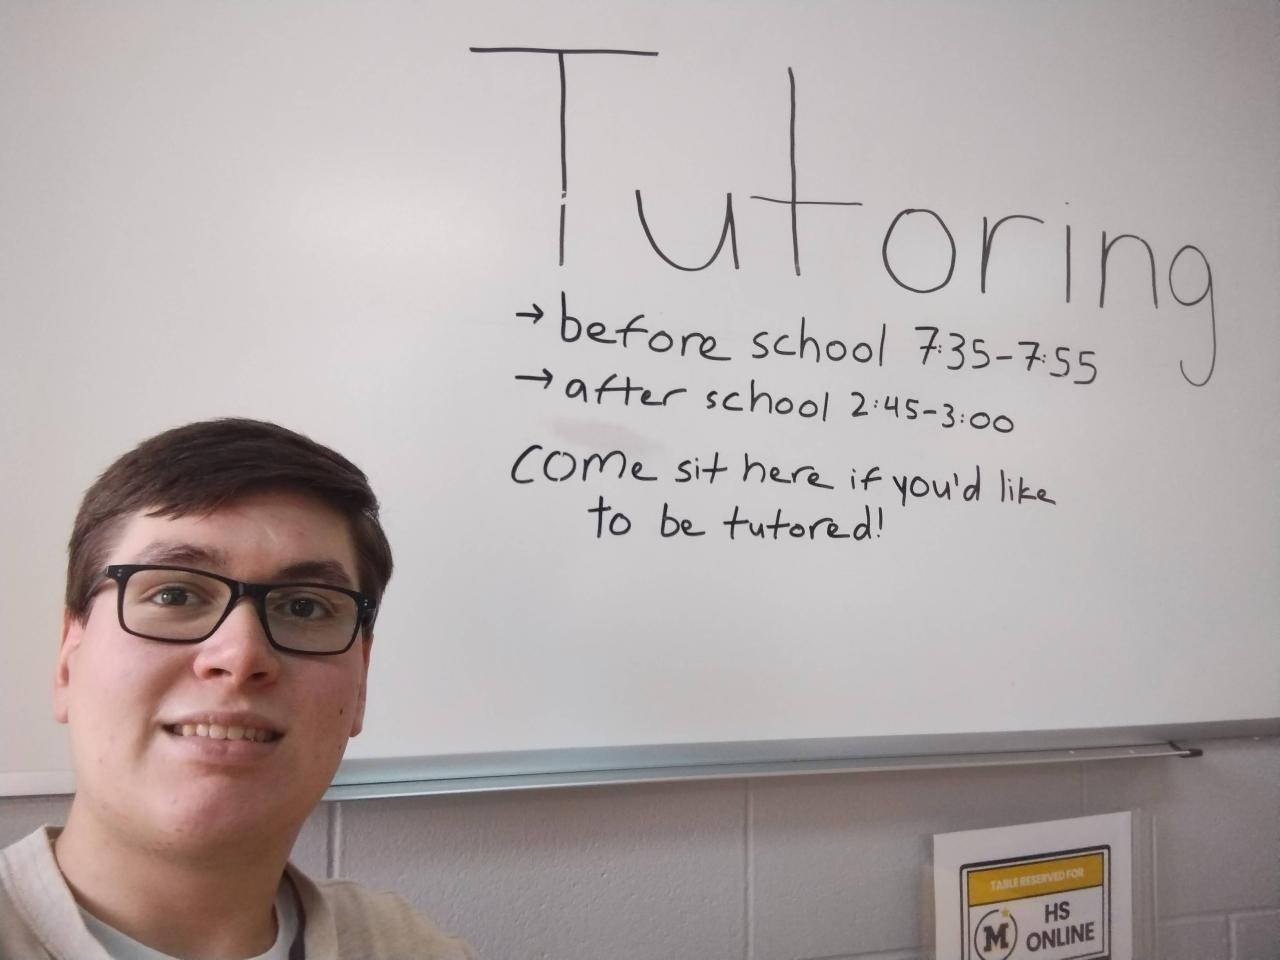 Tutoring
→ before school 7:35-7:55
→ after school 2:45-3:00
Come sit here if you'd like
to be tutored!
TABLE RESERVED FOR
M
HS
ONLINE